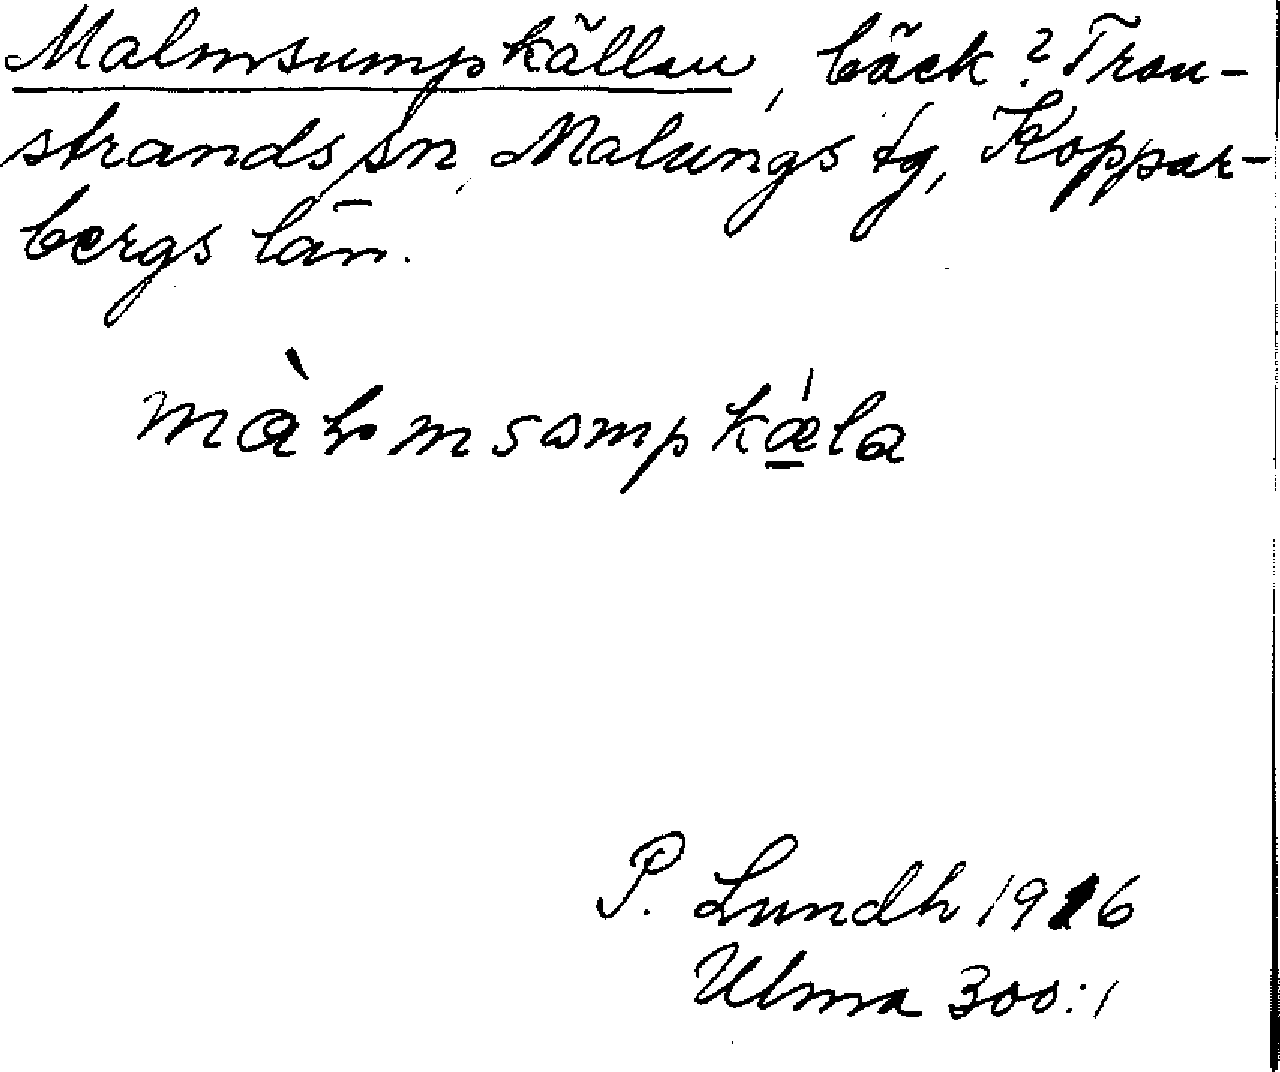 Malmsumpkällan, bäck? Tran-
strands sn, Malungs tg, Koppar-
bergs län.
P. Lundh 1916
Ulma 300:1